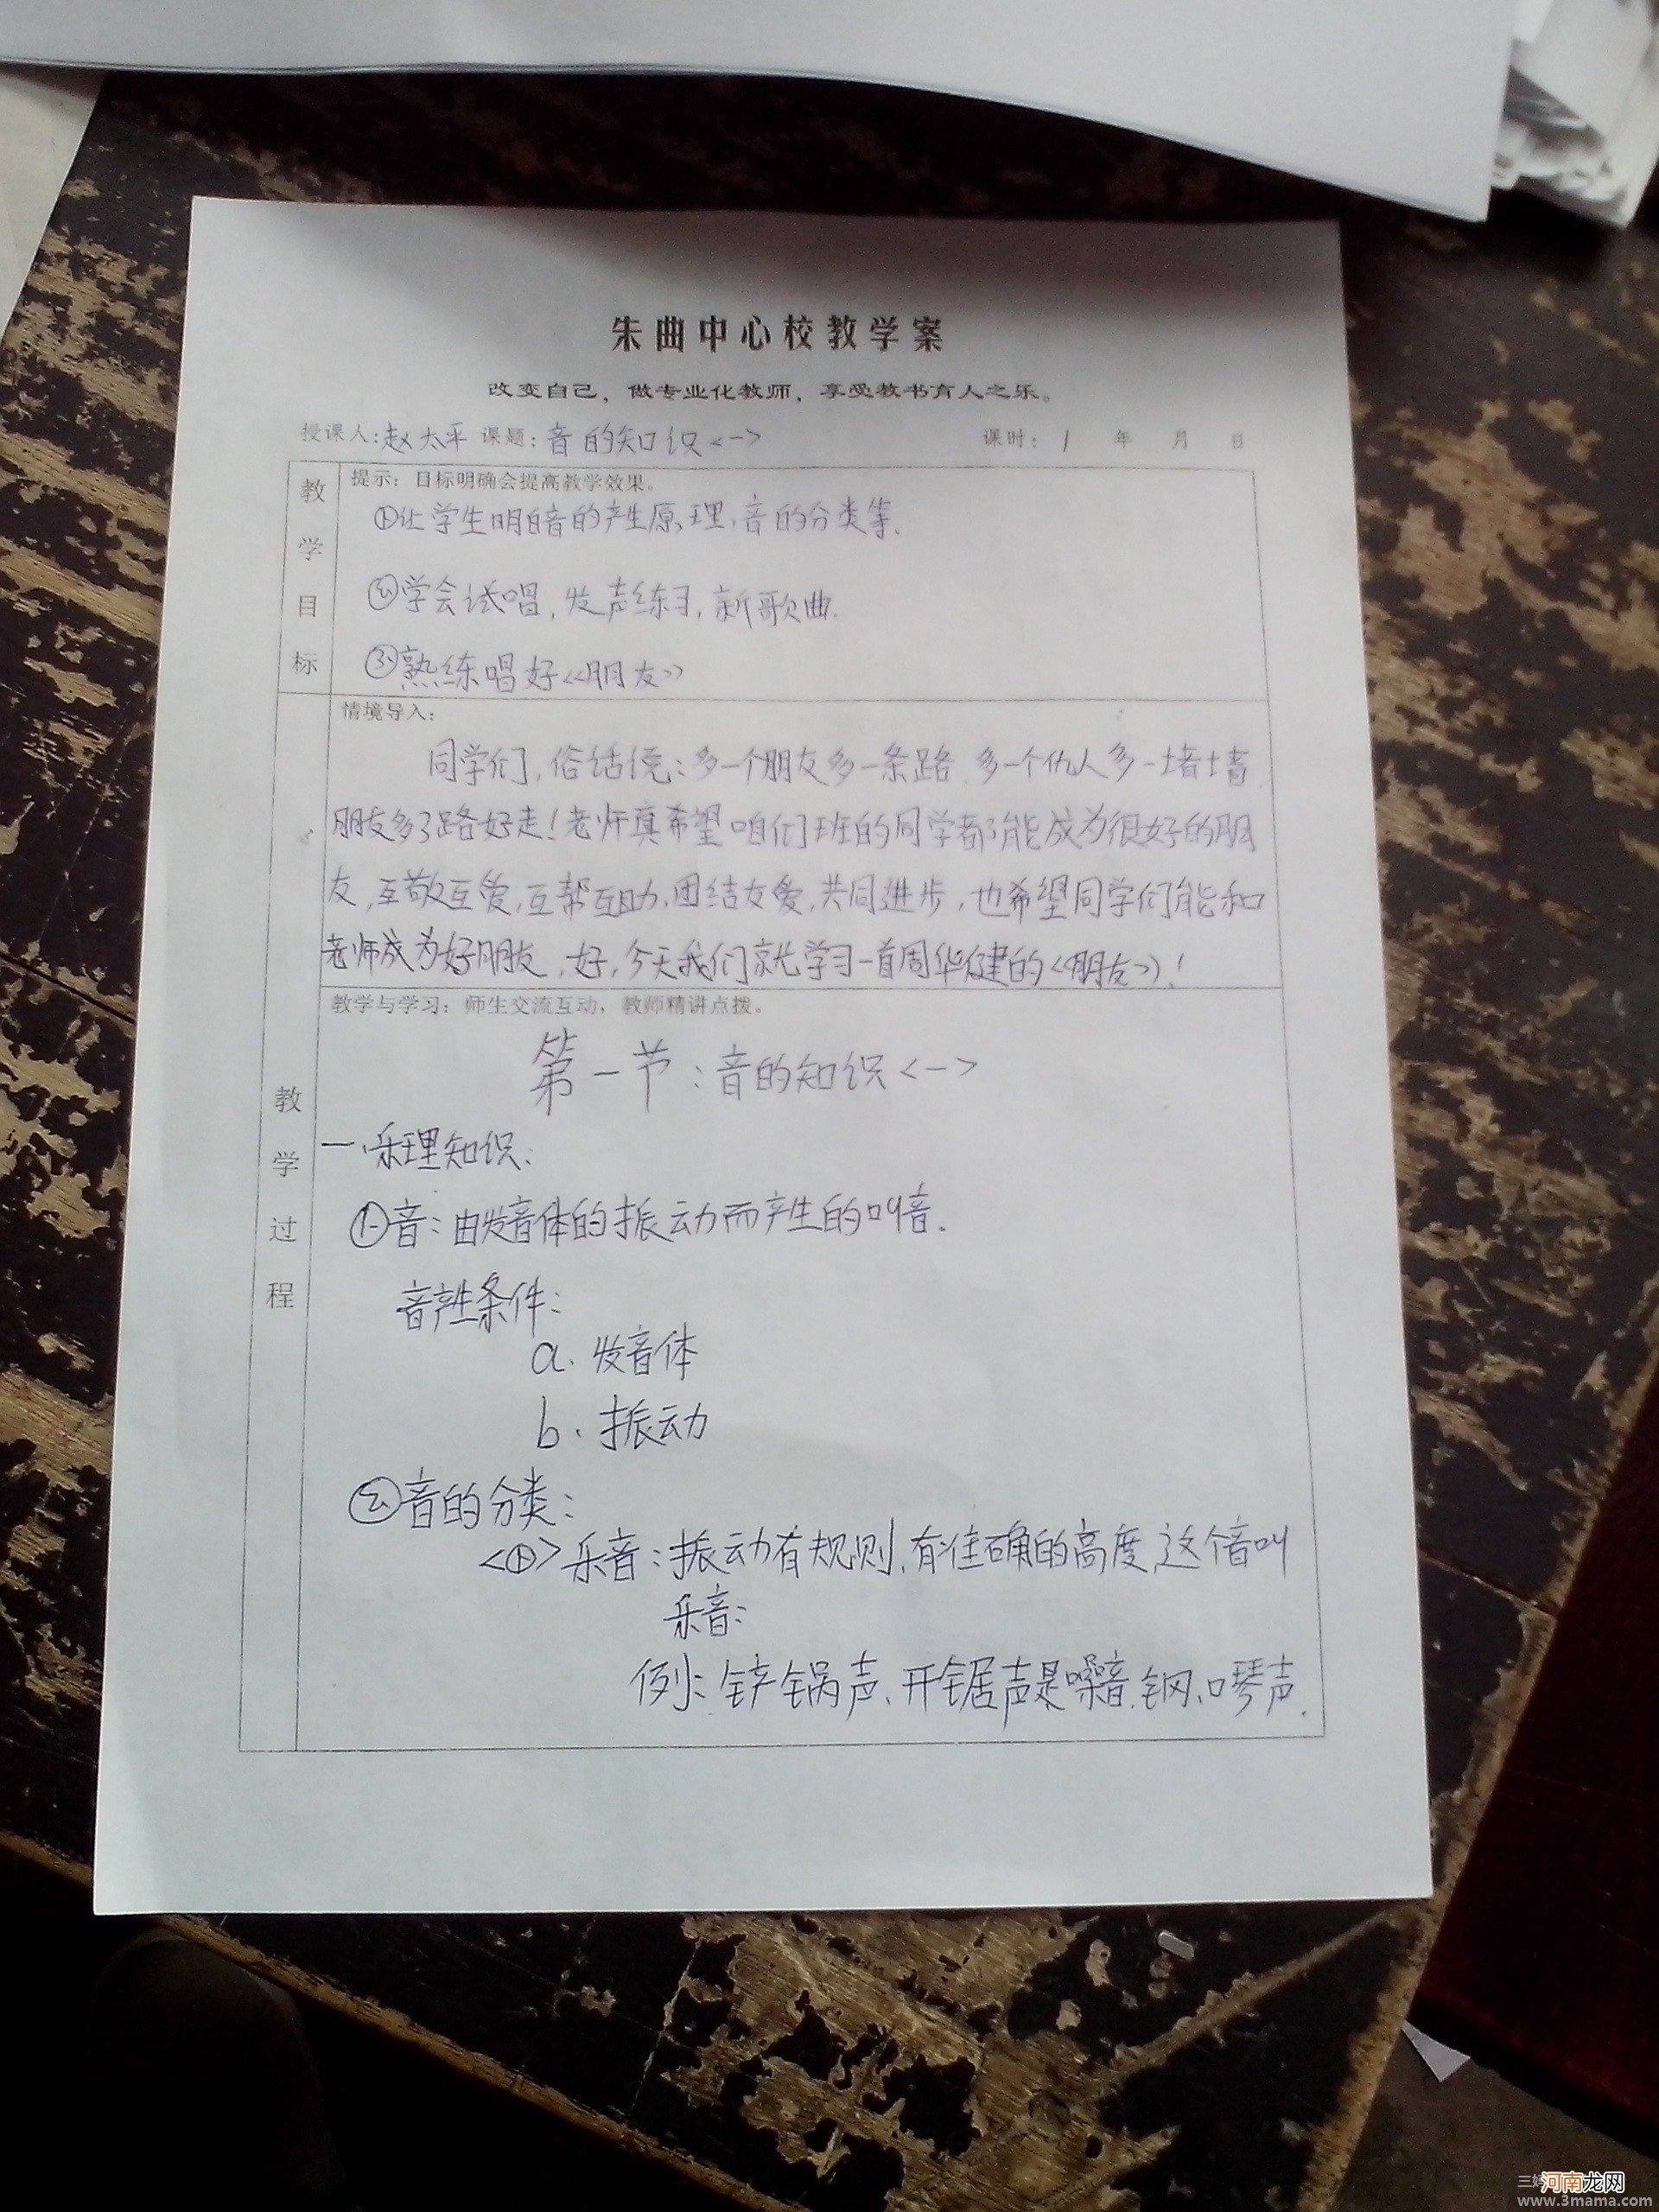 朱曲中心校教学案
改变自己，做专业化教师，享受教书育人之乐。
授课人：赵太平 课题：音的知识<一> 课时：1 年 月 日
教学目标
提示：目标明确会提高教学效果。
①让学生明白音的产生原理，音的分类等.
②学会试唱，发声练习，新歌曲.
③熟练唱好《朋友》
教学过程
情境导入：
同学们，俗话说：多一个朋友多一条路，多一个仇人多一堵墙，
朋友多了路好走！老师真希望咱们班的同学都能成为很好的朋
友，互敬互爱，互帮互助，团结友爱，共同进步，也希望同学们能和
老师成为好朋友，好，今天我们就学习一首周华健的《朋友》！
教学与学习：师生交流互动，教师精讲点拨。
第一节：音的知识<一>
一、乐理知识：
①音：由发音体的振动而产生的叫音.
音产生条件：
a. 发音体
b. 振动
②音的分类：
<①>乐音：振动有规则，有准确的高度，这个音叫
乐音：
例：铲锅声、开锯声是噪音，钢、口琴声.
河南龙网
www.3mama.com